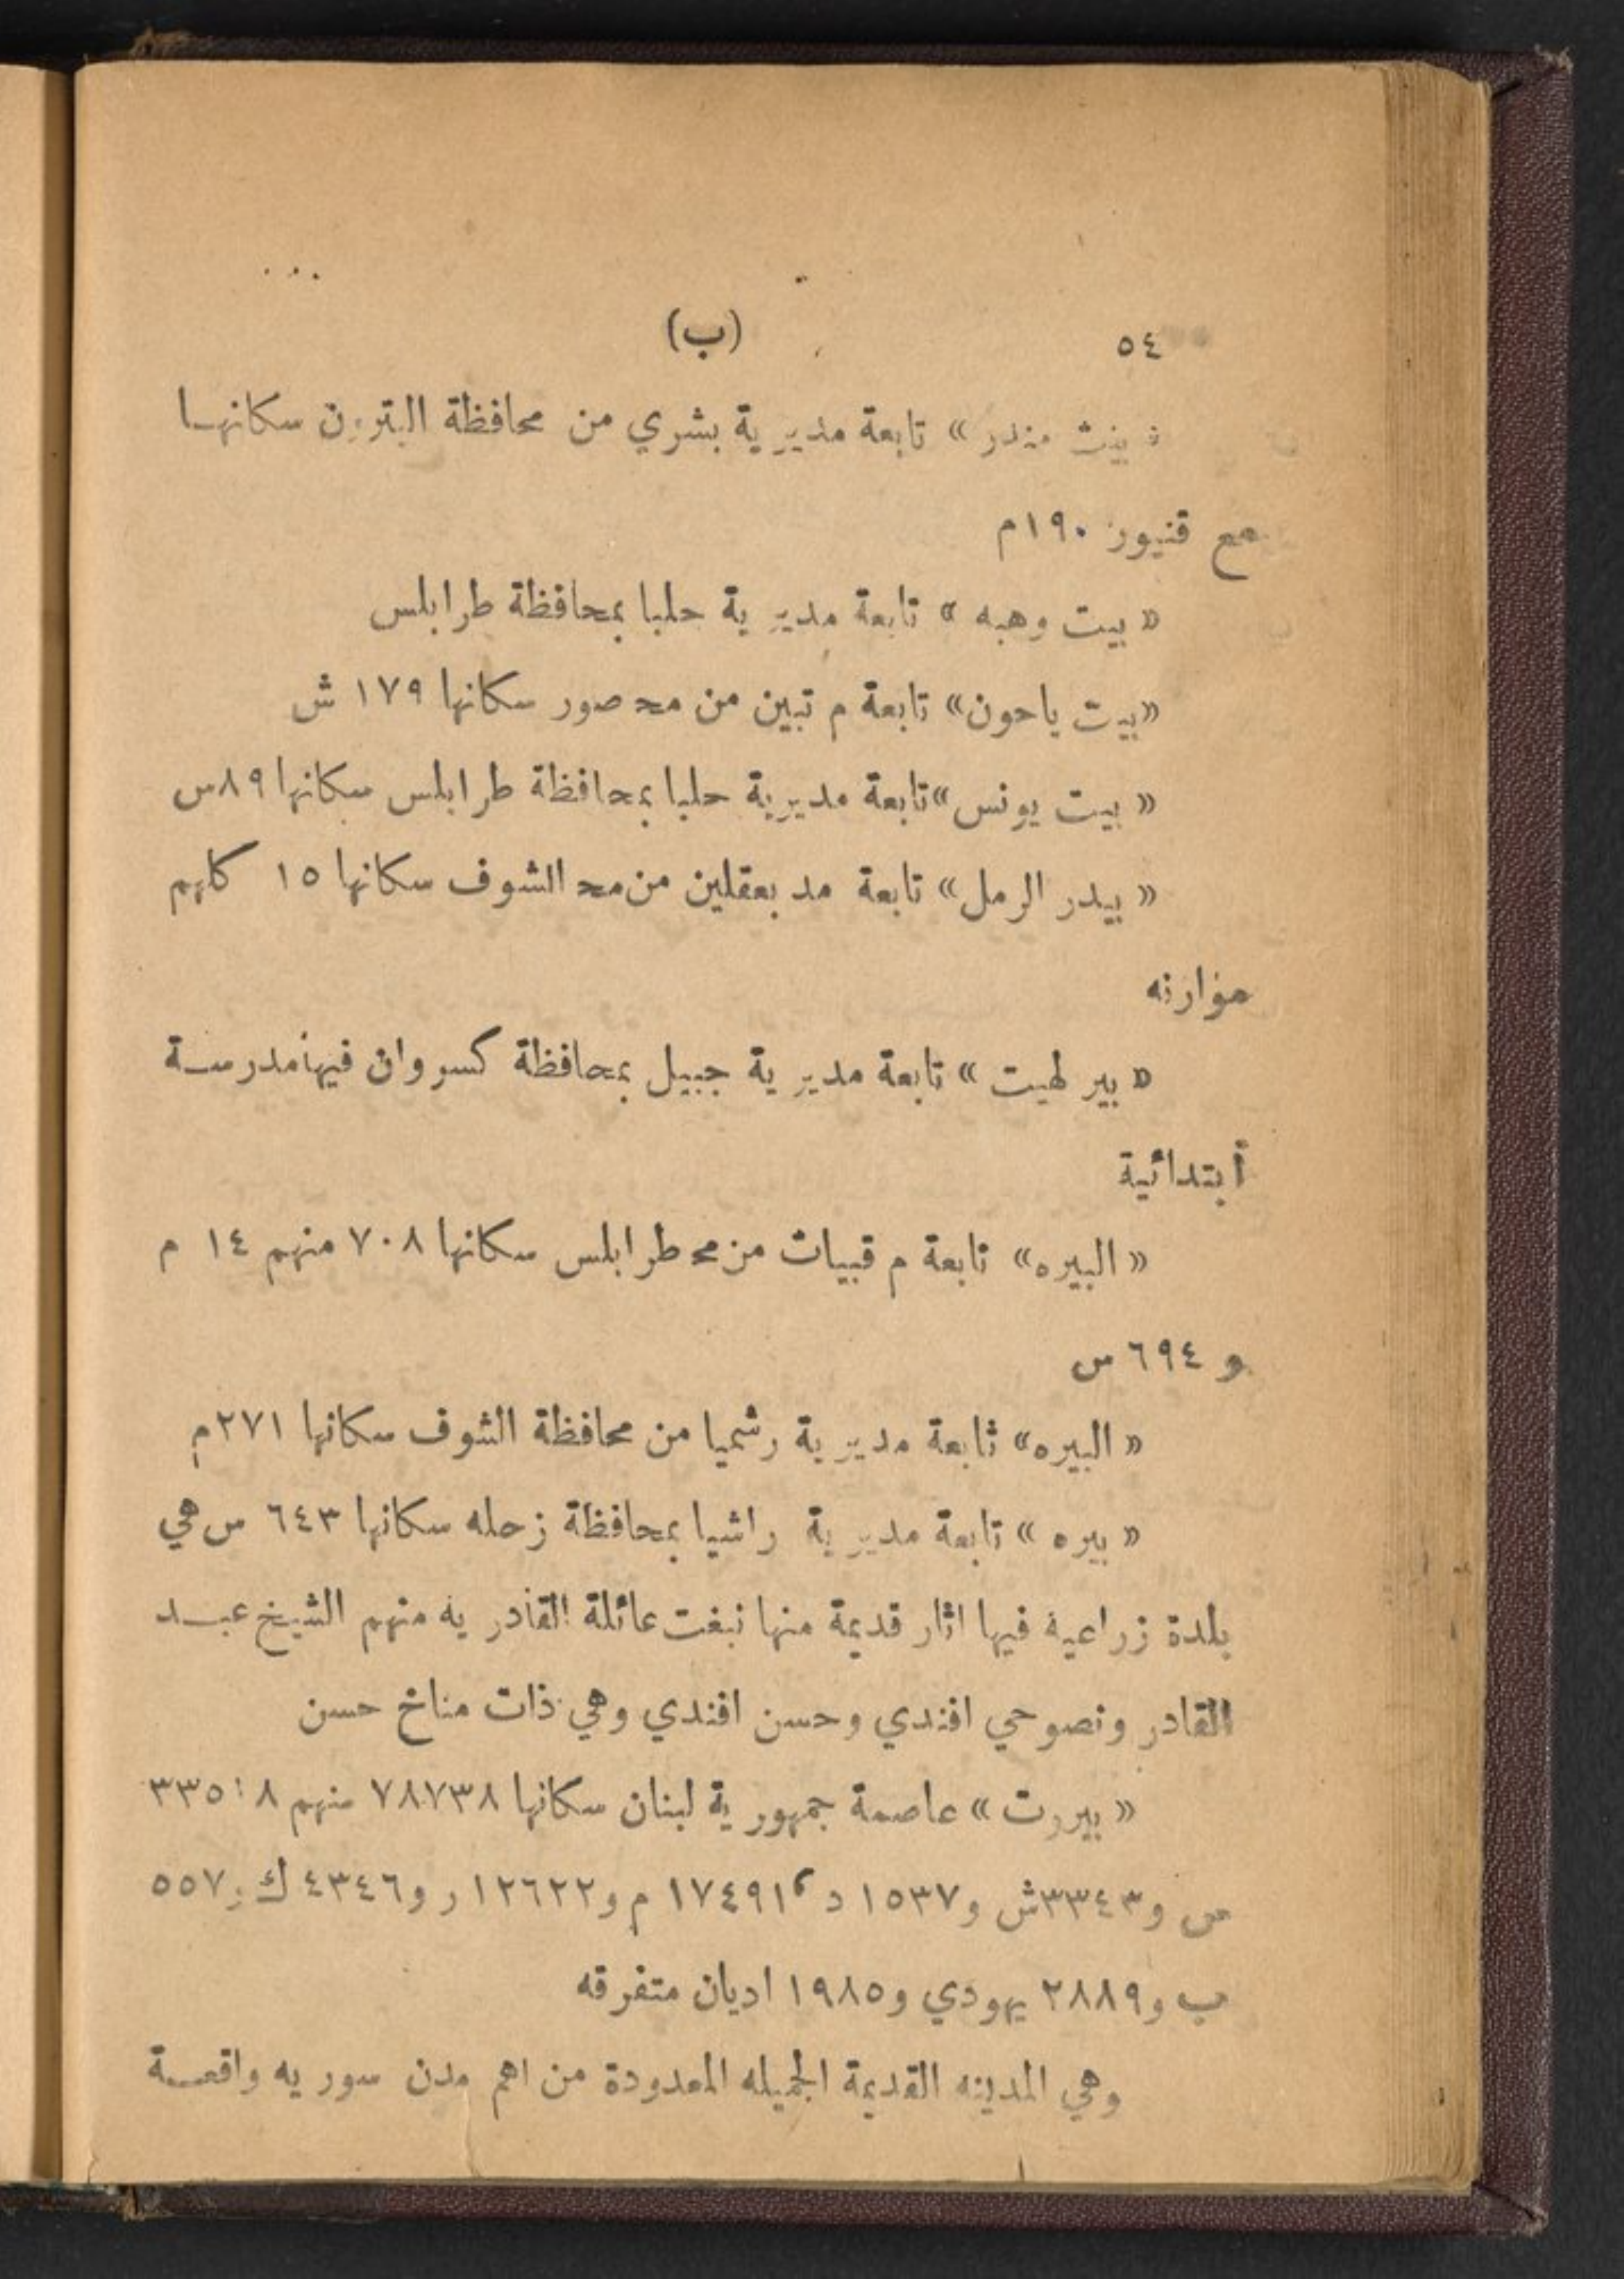 ٥٤ (ب)
« بيت منذر » تابعة مديرية بشري من محافظة البترون سكانها
مع قنيور ١٩٠م
« بيت وهبه » تابعة مديرية حلبا بمحافظة طرابلس
«بيت ياحون» تابعة م تبين من مح صور سكانها ١٧٩ ش
« بيت يونس» تابعة مديرية حلبا بمحافظة طرابلس سكانها ٨٩س
« بيدر الرمل» تابعة مد بعقلين من مح الشوف سكانها ١٥ كلهم
موارنه
« بير لهيت » تابعة مديرية جبيل بمحافظة كسروان فيها مدرسة
أبتدائية
« البيره» تابعة م قبيات من مح طرابلس سكانها ٧٠٨ منهم ١٤ م
و ٦٩٤ س
« البيره» تابعة مديرية رشميا من محافظة الشوف سكانها ٢٧١م
« بيره » تابعة مديرية راشيا بمحافظة زحله سكانها ٦٤٣ س هي
بلدة زراعية فيها اثار قديمة منها نبغت عائلة القادريه منهم الشيخ عبد
القادر ونصوحي افندي وحسن افندي وهي ذات مناخ حسن
« بيروت » عاصمة جمهورية لبنان سكانها ٧٨٧٣٨ منهم
س و٣٣٤٣ش و١٥٣٧ د ١٧٤٩١ م و١٢٦٢٢ ر و٤٣٤٦ ك و٥٥٧
ب و٢٨٨٩ يهودي و١٩٨٥ اديان متفرقه
وهي المدينه القديمة الجميله المعدودة من اهم مدن سوريه واقعة